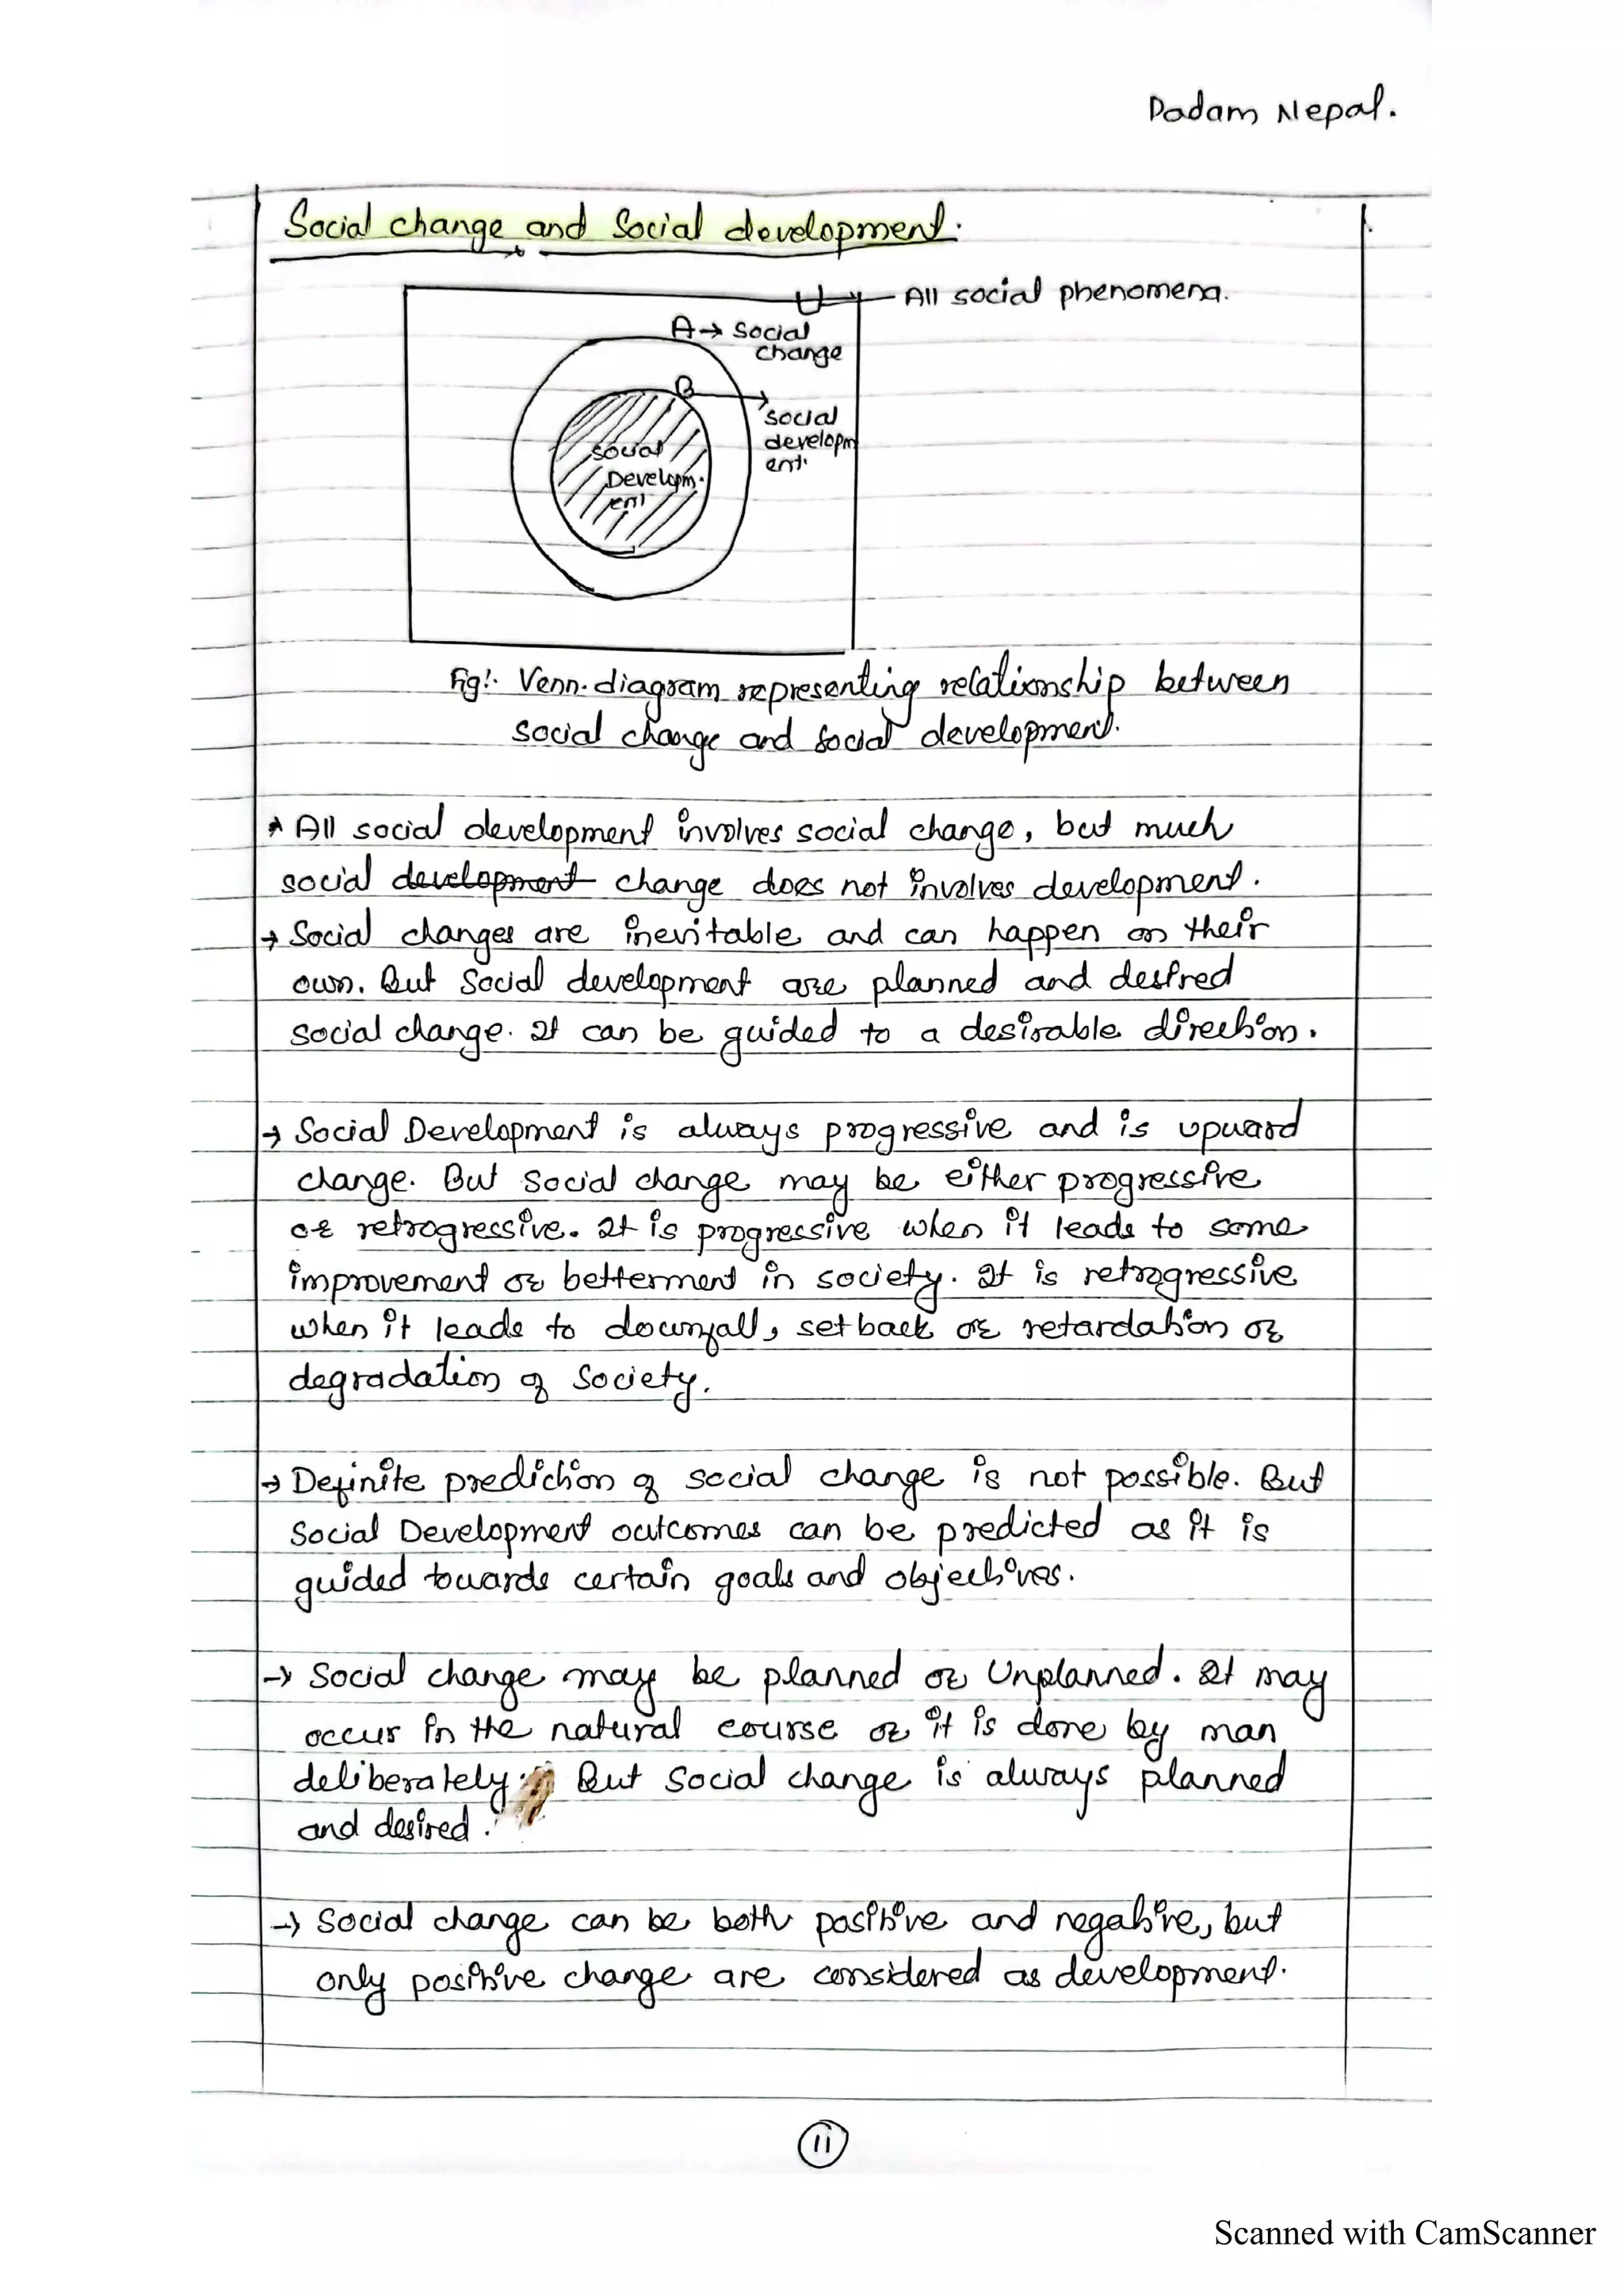 Dadam Nepal.
Social change and Social development.
U
All social phenomena.
A→ social
change
B
social
developm
ent.
social
Developm.
ent
Fig!. Venn-diagram representing relationship between
social change and social development.
→ All social development involves social change, but much
social development change does not involves development.
→ Social changes are inevitable and can happen on their
own. But Social development are planned and desired
social change. It can be guided to a desirable direction.
→ Social Development is always progressive and is upward
change. But social change may be either progressive
or retrogressive. It is progressive when it leads to some
improvement or betterment in society. It is retrogressive
when it leads to downfall, setback or retardation or
degradation of Society.
→ Definite prediction of social change is not possible. But
Social Development outcomes can be predicted as it is
guided towards certain goals and objectives.
→ Social change may be planned or Unplanned. It may
occur in the natural course or it is done by man
deliberately. But Social change is always planned
and desired.
→ Social change can be both positive and negative, but
only positive change are considered as development.
11
Scanned with CamScanner